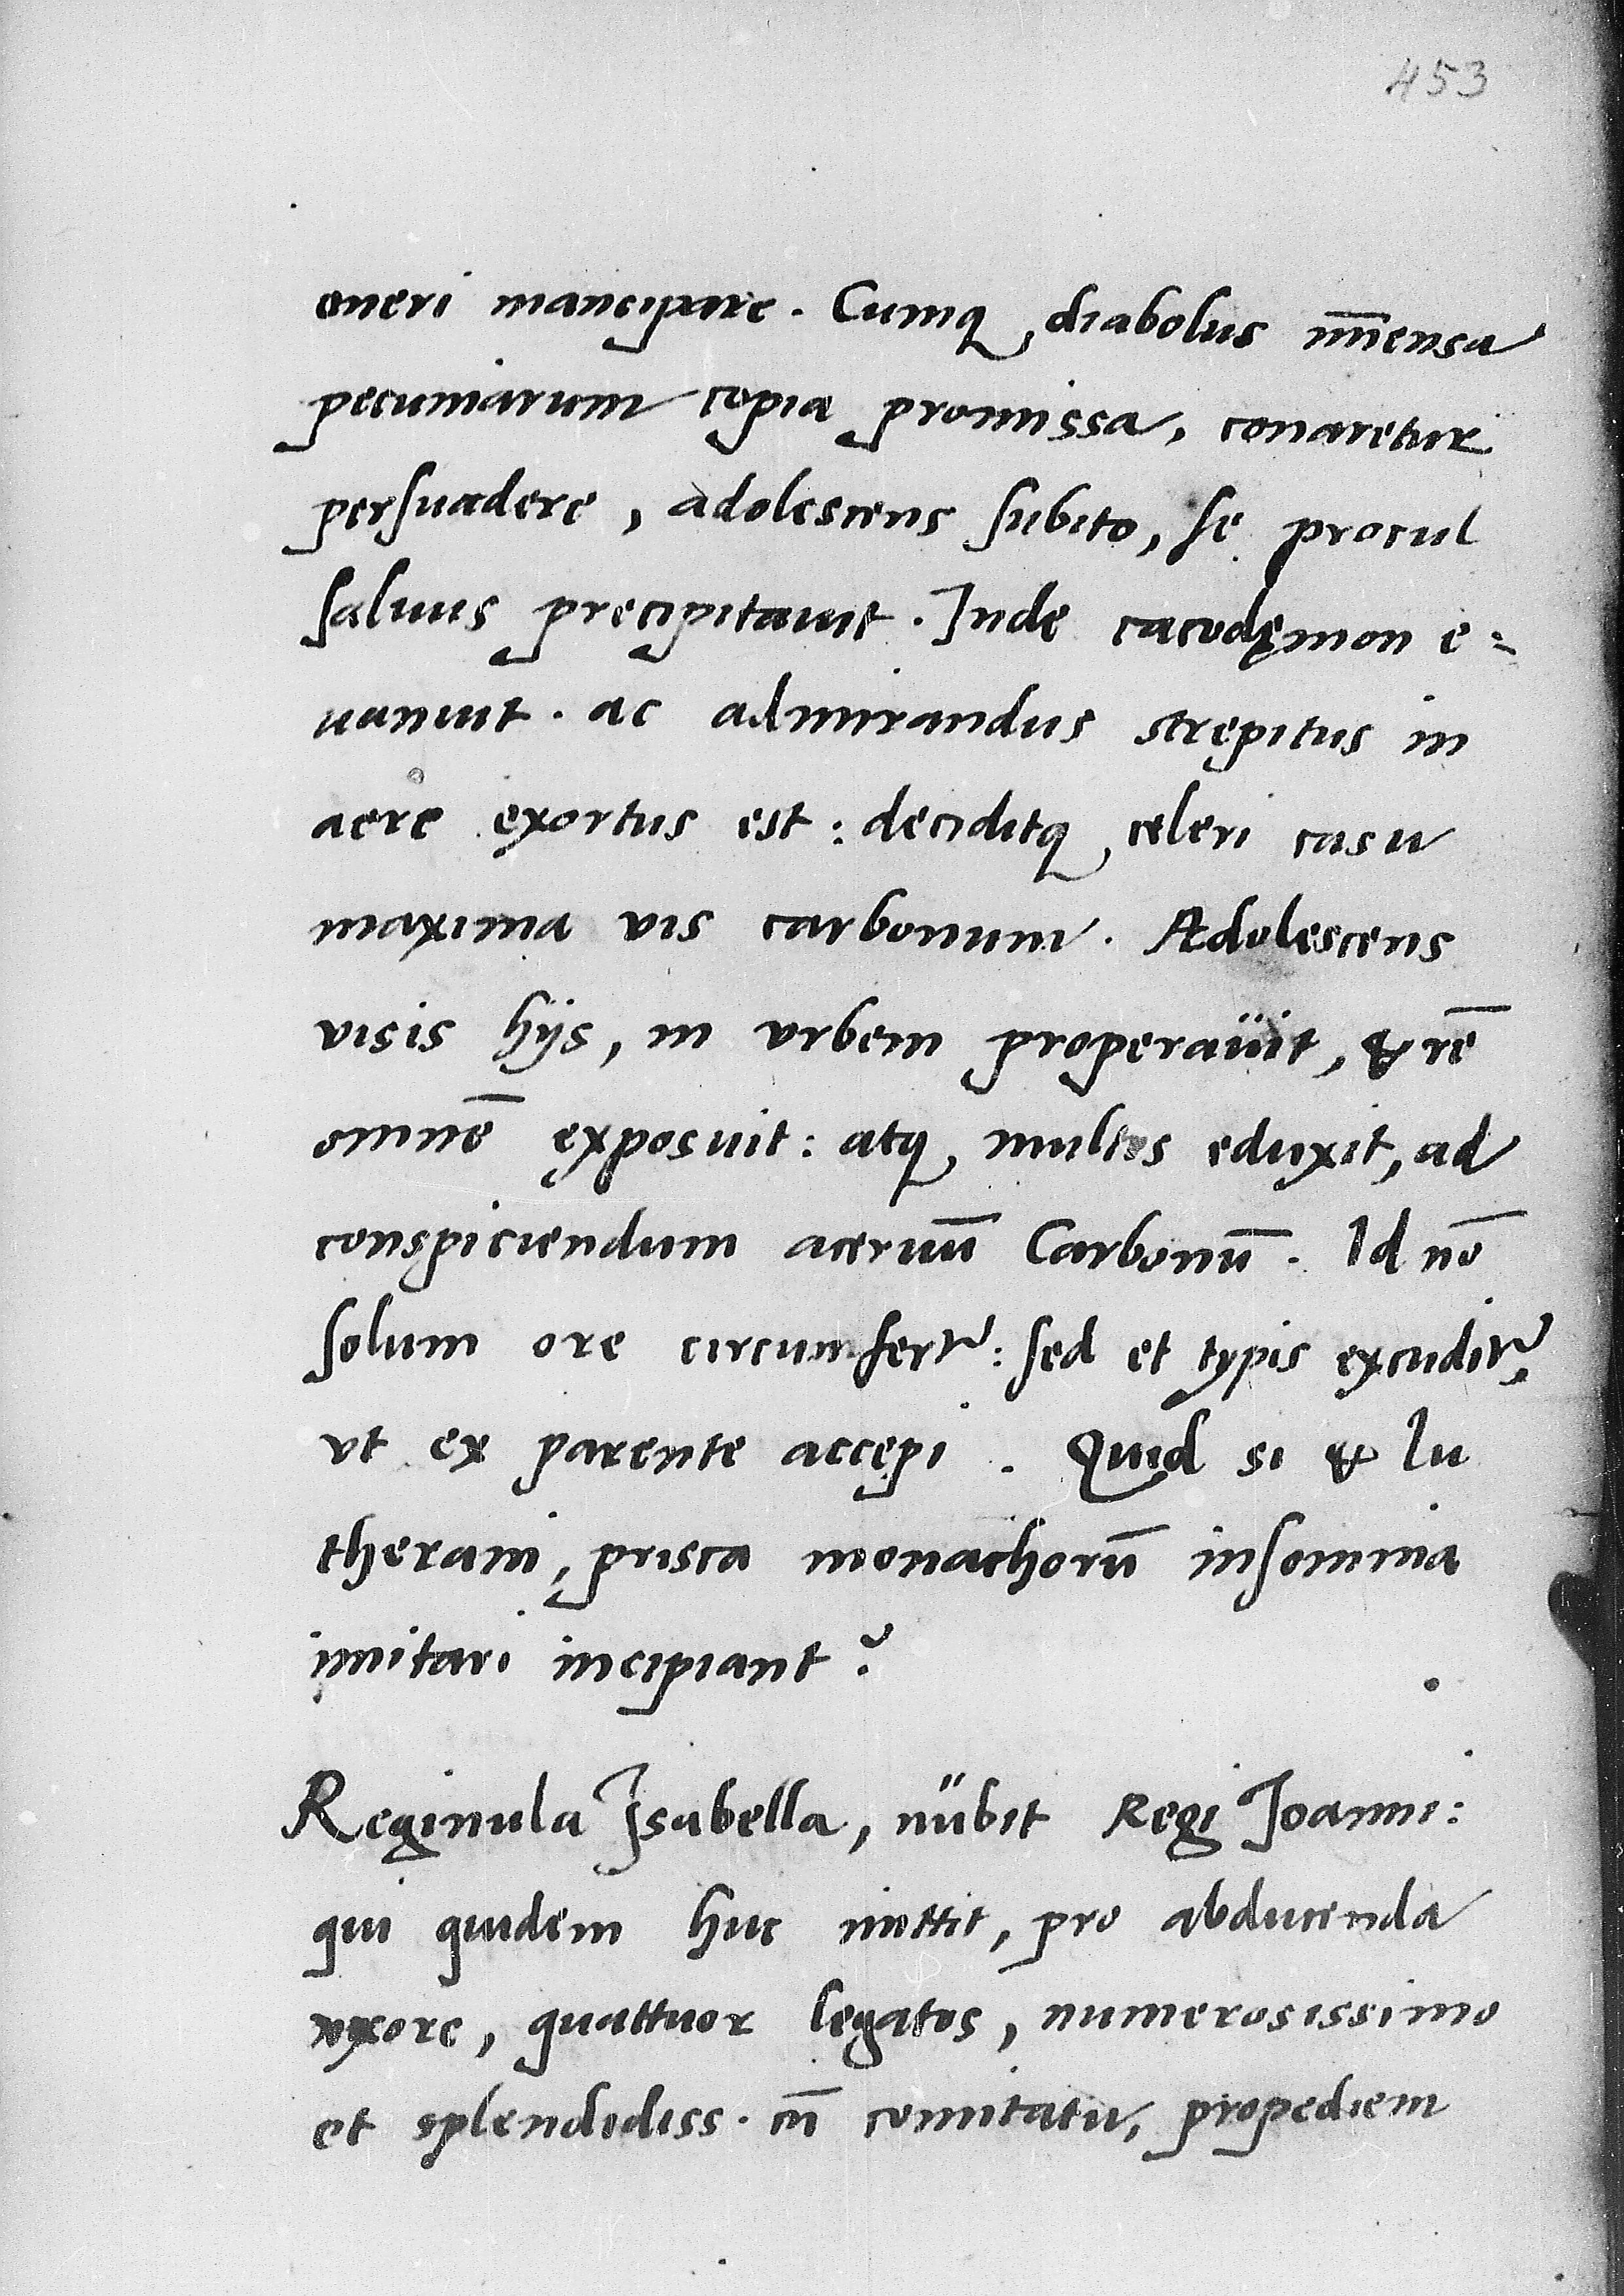 453
oneri mancipare. Cumq, diabolus im̄ensa
pecuniarum copia promissa, conaretur
persuadere, adolescens subito, se procul
saluus precipitauit. Inde cacodęmon e=
uanuit. ac admirandus strepitus in
aere exortus est: deciditq, celeri casu
maxima vis carbonum. Adolescens
visis hijs, in vrbem properauit, & rē
omnē exposuit: atq, multos eduxit, ad
conspiciendum aceruū Carbonū. Id nō
solum ore circumfert᷑: sed et typis excudit᷑,
vt ex parente accepi. Quid si & lu
therani, prisca monachorū insomnia
imitari incipiant?
Reginula Isabella, nübit Regi Joanni:
qui quidem huc mittit, pro abducenda
vxore, quattuor legatos, numerosissimo
et splendidiss. cū comitatu, propediem